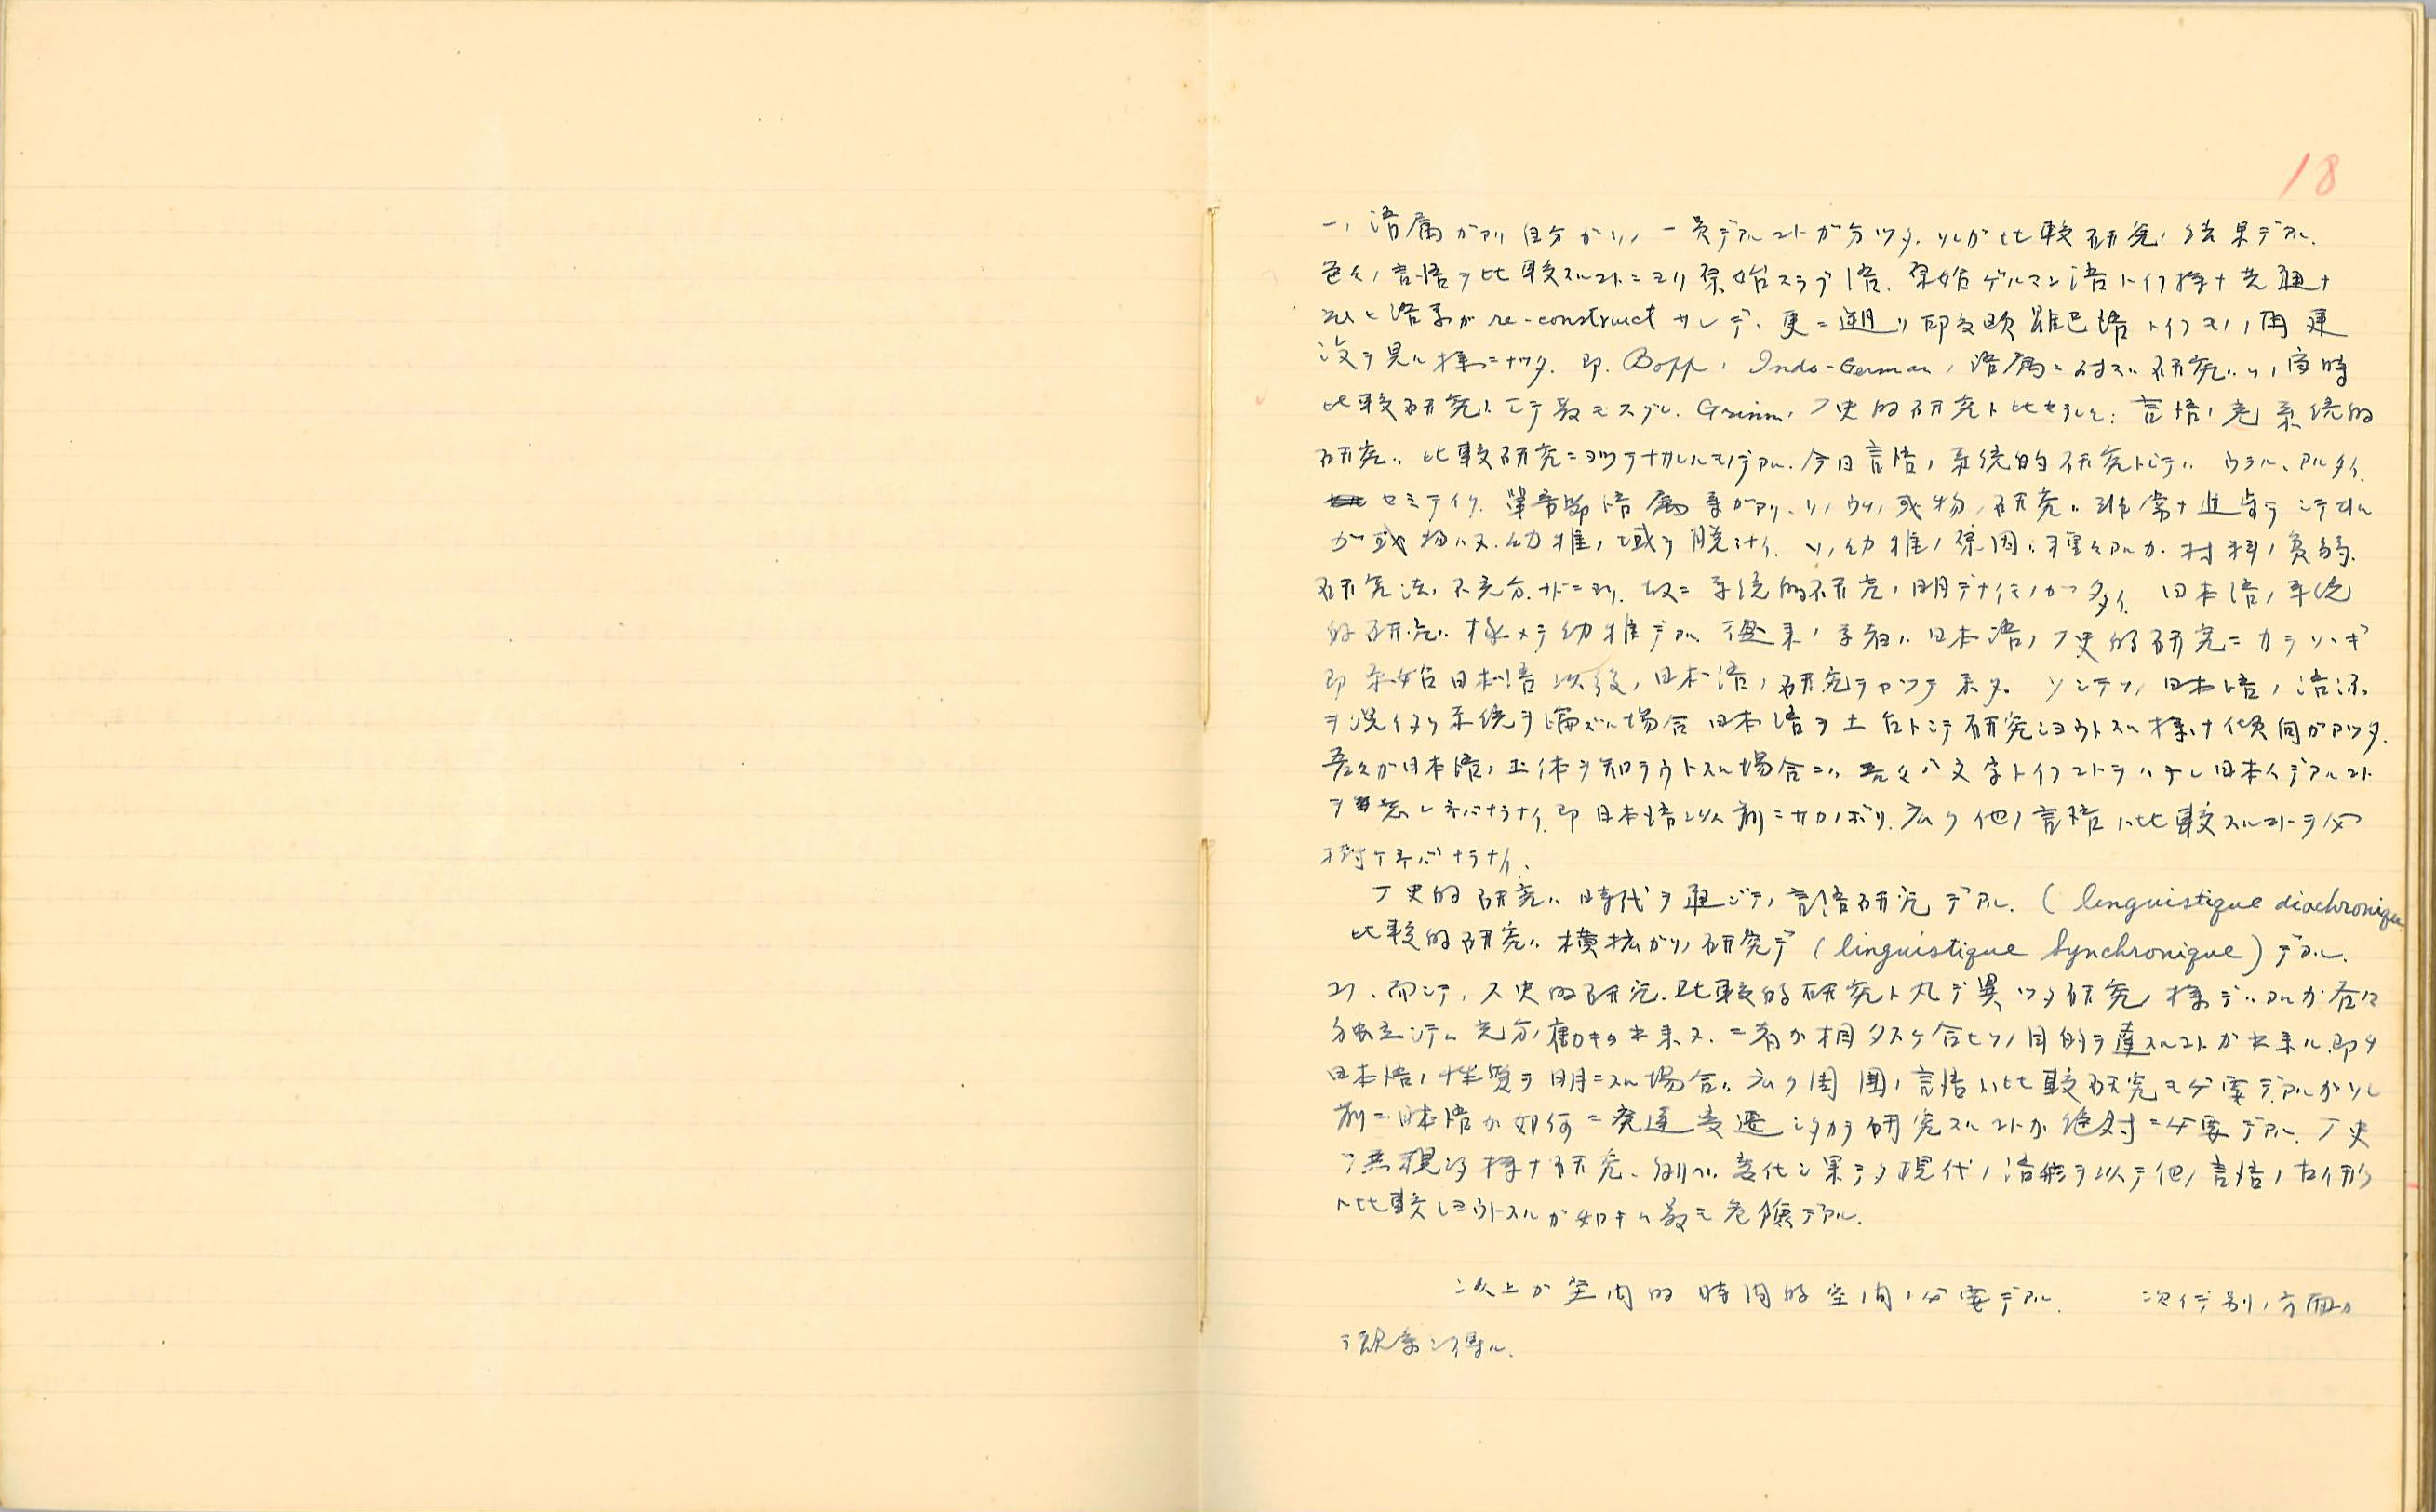 18
一ノ語属ガアリ自分ガソノ一員デアルコトガ分ツタ.ソレガ比較研究ノ結果デアル.
色々ノ言語ヲ比較スルコトニヨリ原始スラブ語.原始ゲルマン語トイフ様ナ共通ナ
語系ガ re-construct サレテ、更ニ遡リ印度欧羅巴語トイフモノノ再建
設ヲ見ル様ニナツタ.即.Bopp、Indo-German、語属ニ対スル研究ハソノ当時
比較研究トシテ最モスグレ.Grimm、ノ史的研究ト比セラレル.言語ノ系統的
研究ハ比較研究ニヨツテナサレルモノデアル.今日言語ノ系統的研究トシテハウラル、アルタイ.
セミティク.単音節語属等ガアリ、ソノウチノ或物ノ研究ハ非常ナ進歩ヲシテヰル
ガ或物ハ又.幼稚ノ域ヲ脱シナイ.ソノ幼稚ノ原因ハ種々アルガ.材料ノ貧弱.
研究法ノ不充分.ナドニヨリ.故ニ系統的研究ノ明デナイモノガ多イ.日本語ノ系統
的研究ハ極メテ幼稚デアル.従来ノ学者ハ日本語ノ歴史的研究ニ
即原始日本語以後ノ日本語ノ研究ヲヤツテ来タ.ソシテソノ日本語ノ語源
ヲ説イタリ系統ヲ論ズル場合日本語ヲ土台トシテ研究シヨウトスル様ナ傾向ガアツタ.
吾々ガ日本語ノ正体ヲ知ラウトスル場合ニハ吾々ハ文字トイフコトヲハナレ日本人デアルコト
ヲ忘レネバナラナイ.即日本語以前ニサカノボリ.広ク他ノ言語ト比較スルコトヲ心
掛ケネバナラナイ.
歴史的研究ハ時代ヲ通ジテノ言語研究デアル.(lenguistique diachronique
比較的研究ハ横拡ガリノ研究デ(linguistique Synchronique)デアル.
而シテ.歴史的研究.比較的研究ト丸デ異ツタ研究ノ様デハアルガ各々
独立シテハ充分働キガ出来ヌ.二者ガ相タスケ合ヒソノ目的ヲ達スルコトガ出来ル.即チ
日本語ノ性質ヲ明ニスル場合ハ広ク周囲ノ言語ト比較研究モ必要デアルガソレ
前ニ日本語ガ如何ニ発達変遷シタカヲ研究スルコトガ絶対ニ必要デアル.歴史
ヲ無視シタ様ナ研究、例ヘバ変化シ果テタ現代ノ語形ヲ以テ他ノ言語ノ古イ形
ト比較シヨウトスルガ如キハ最モ危険デアル.
以上ガ空間的時間的空間ノ必要デアル.次イデ別ノ方面カ
ラ観察シ得ル.